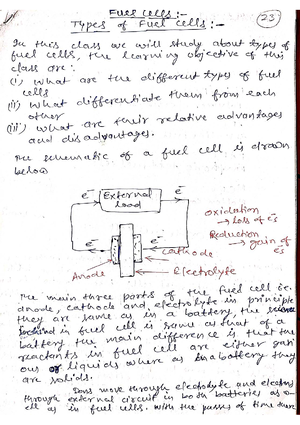 Fuel Cells:-
Types of Fuel Cells:-
23
In this class we will study about types of
fuel cells, the learning objective of this
class are:
(i) what are the different types of fuel
cells
(ii) what differentiate them from each
other
(iii) what are their relative advantages
and disadvantages.
The schematic of a fuel cell is drawn
below
e⁻
External
load
e⁻
Oxidation
→ loss of e⁻s
Reduction
→ gain of
e⁻s
e⁻
e⁻
Cathode
Anode
Electrolyte
The main three parts of the fuel cell i.e.
anode, cathode and electrolyte in principle
they are same as in a battery, the
in fuel cell is same as that of a
battery the main difference is that the
reactants in fuel cell are either gase
ous or liquids where as in battery they
are solids.
Ions move through electrolyte and electrons
through external circuit in both batteries as w
ell as in fuel cells. With the passes of time there